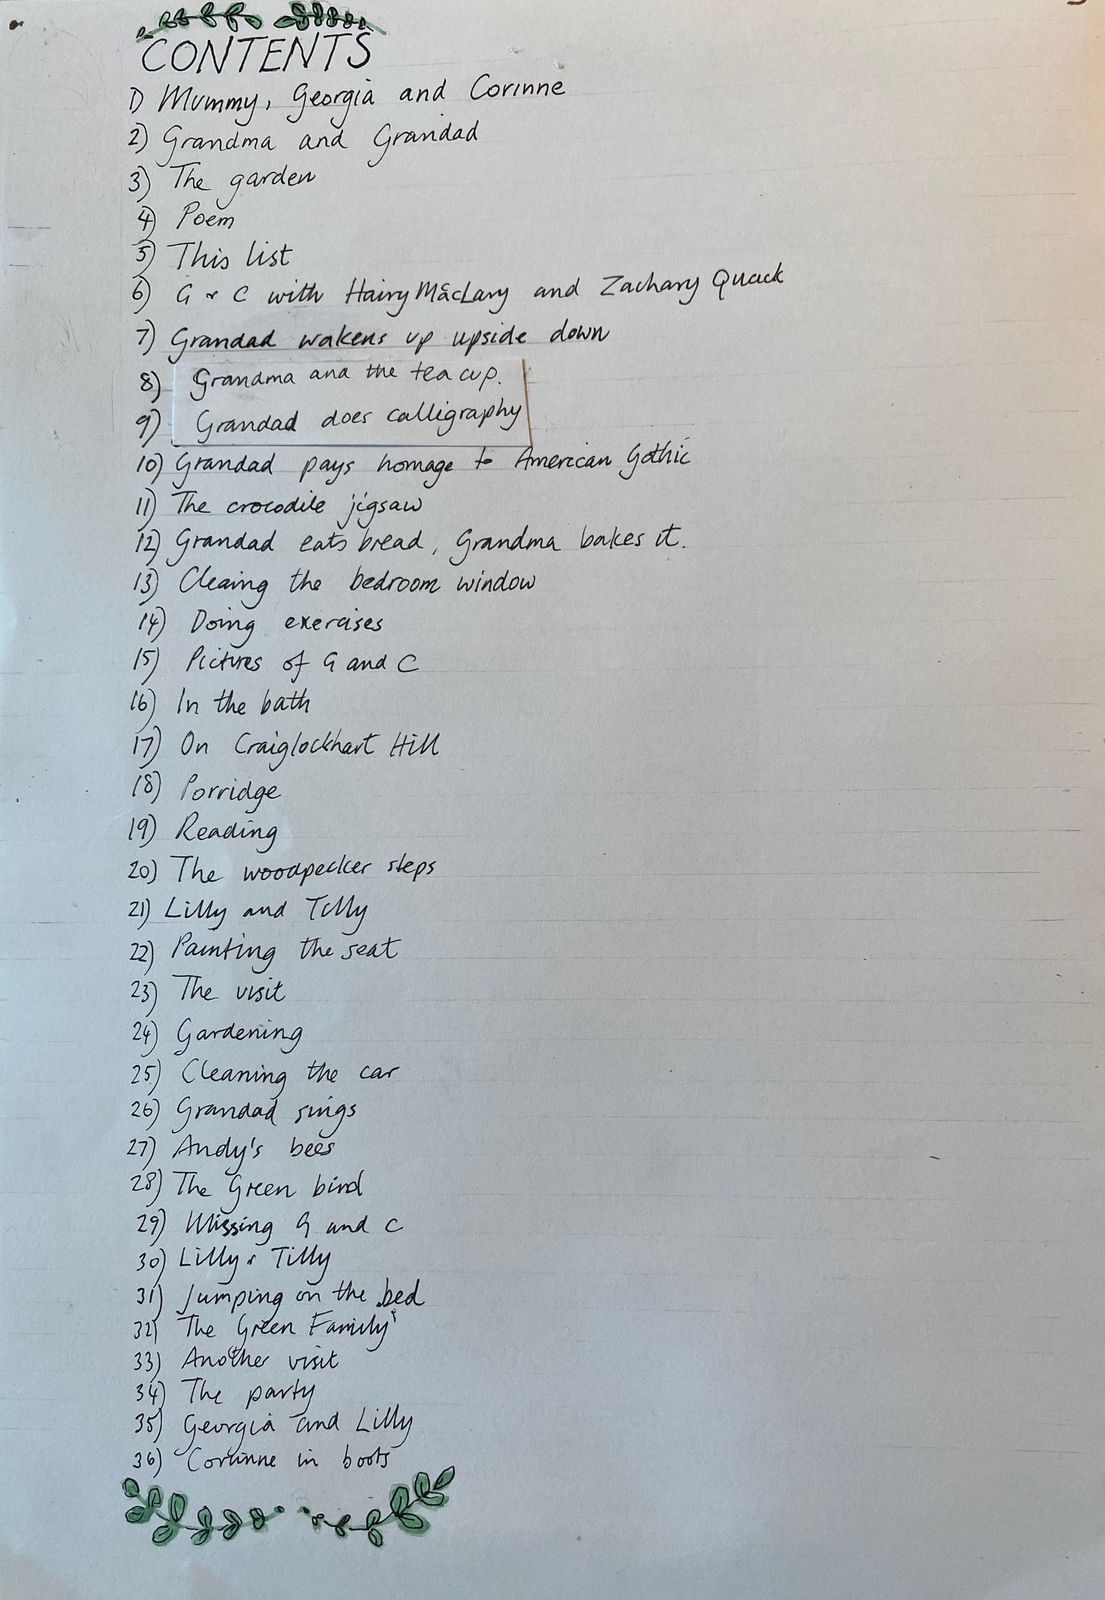 CONTENTS
1) Mummy, Georgia and Corinne
2) Grandma and Grandad
3) The garden
4) Poem
5) This list
6) G & C with Hairy Maclary and Zachary Quack
7) Grandad wakens up upside down
8) Grandma and the tea cup.
9) Grandad does calligraphy
10) Grandad pays homage to American Gothic
11) The crocodile jigsaw
12) Grandad eats bread, Grandma bakes it.
13) Cleaing the bedroom window
14) Doing exercises
15) Pictures of G and C
16) In the bath
17) On Craiglockhart Hill
18) Porridge
19) Reading
20) The woodpecker steps
21) Lilly and Tilly
22) Painting the seat
23) The visit
24) Gardening
25) Cleaning the car
26) Grandad sings
27) Andy's bees
28) The Green bird
29) Missing G and C
30) Lilly & Tilly
31) Jumping on the bed
32) The Green Family
33) Another visit
34) The party
35) Georgia and Lilly
36) Corinne in boots